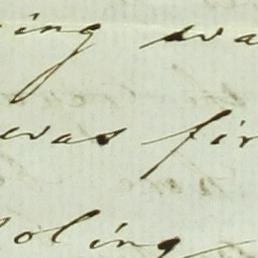 ing wa
was fir
oling